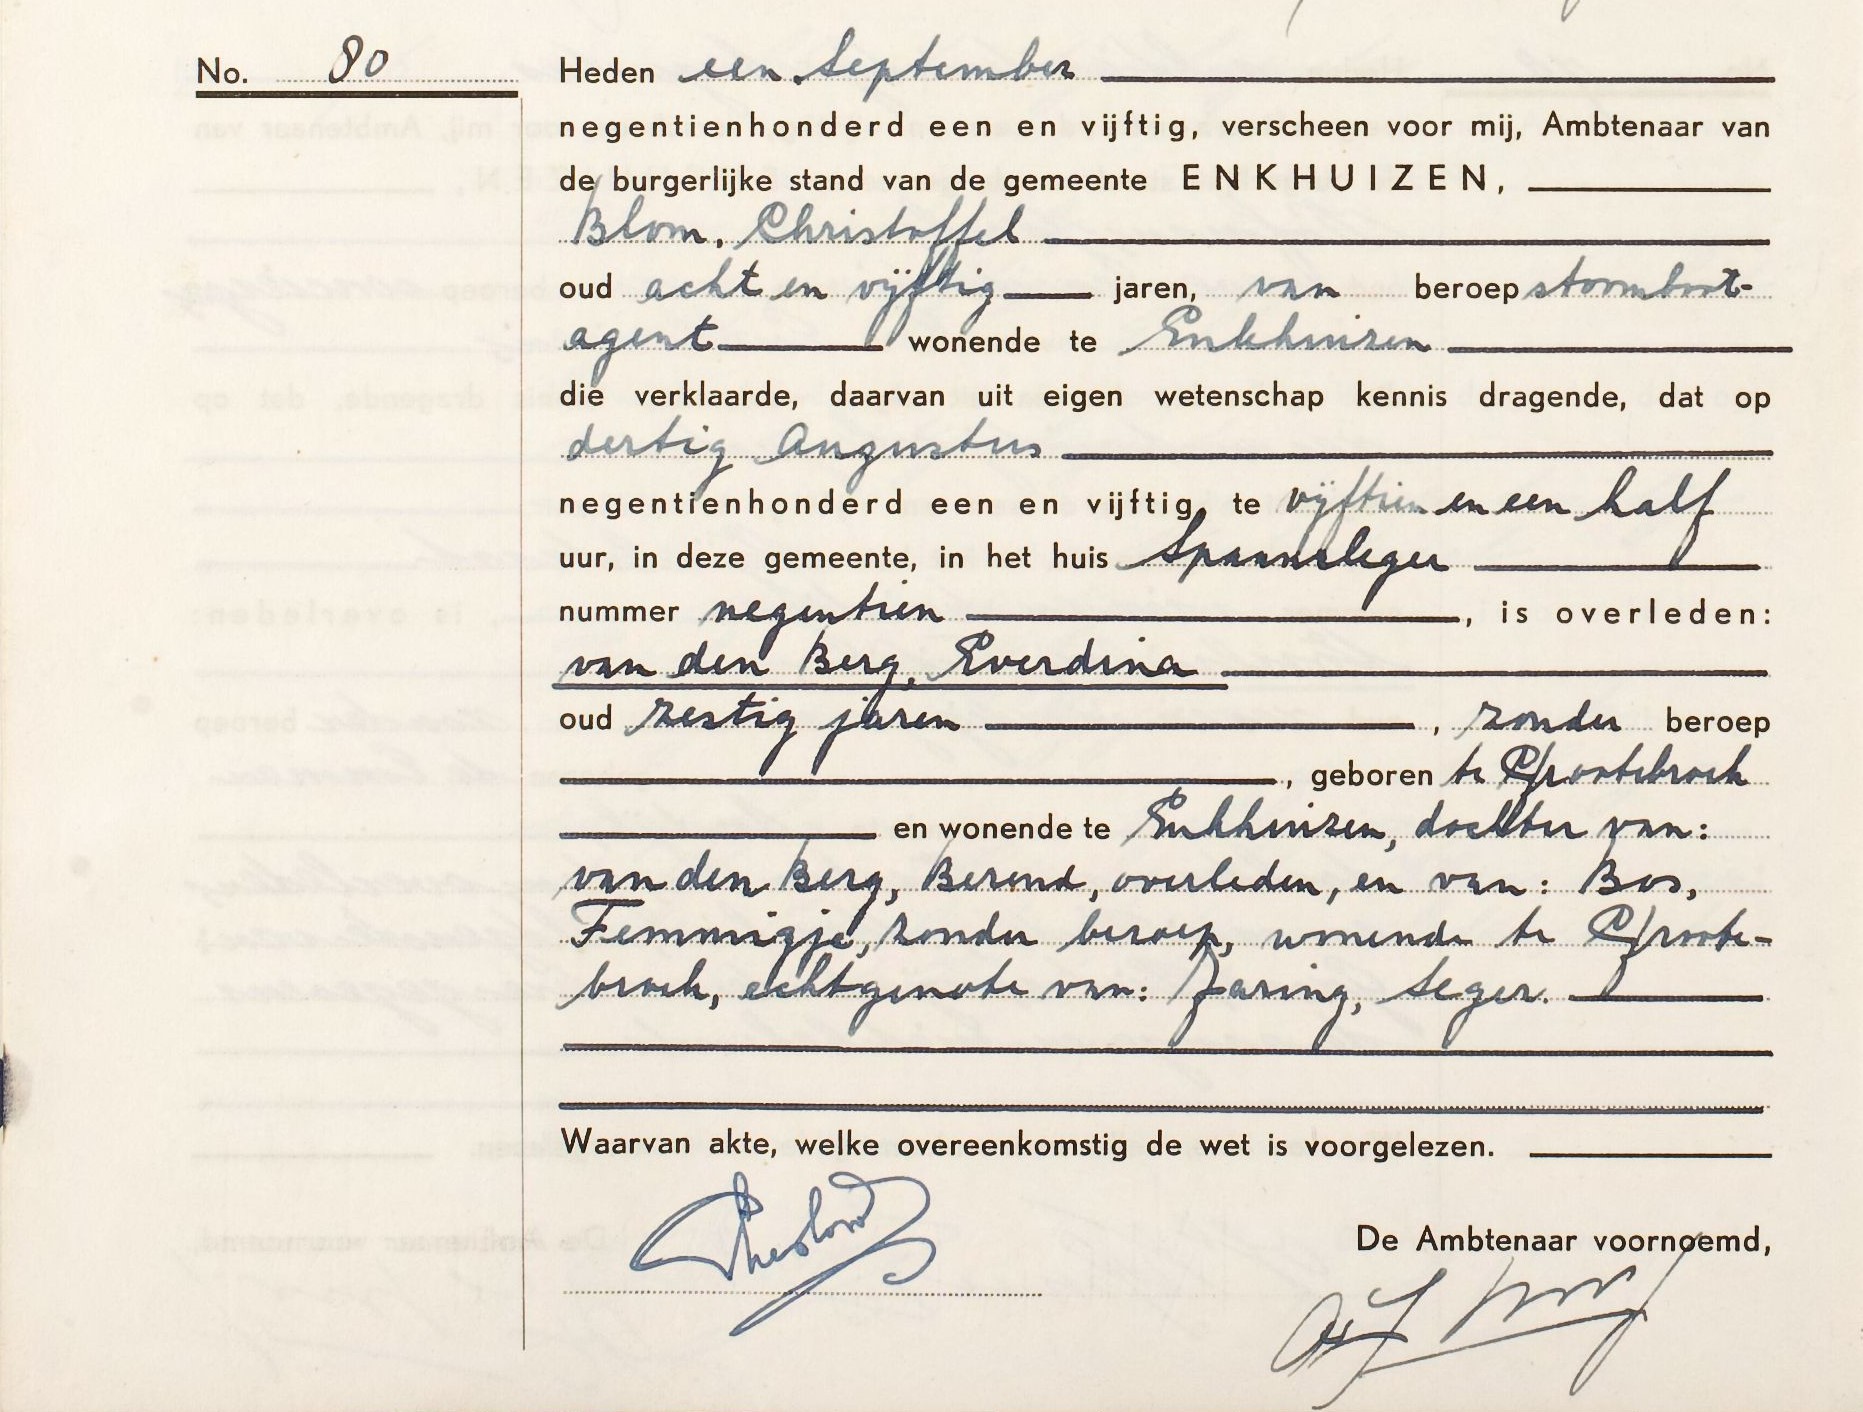 No. 80
Heden een September
negentienhonderd een en vijftig, verscheen voor mij, Ambtenaar van
de burgerlijke stand van de gemeente ENKHUIZEN,
Blom, Christoffel
oud acht en vijftig jaren, van beroep stoomboot-
agent wonende te Enkhuizen
die verklaarde, daarvan uit eigen wetenschap kennis dragende, dat op
dertig Augustus
negentienhonderd een en vijftig, te vijftien en een half
uur, in deze gemeente, in het huis Spaansleger
nummer negentien, is overleden:
van den Berg, Everdina
oud zestig jaren, zonder beroep
, geboren te Grootebroek
en wonende te Enkhuizen, dochter van:
van den Berg, Berend, overleden, en van: Bos,
Femmigje, zonder beroep, wonende te Groote-
broek, echtgenote van: Jaring, Seger.
Waarvan akte, welke overeenkomstig de wet is voorgelezen.
De Ambtenaar voornoemd,